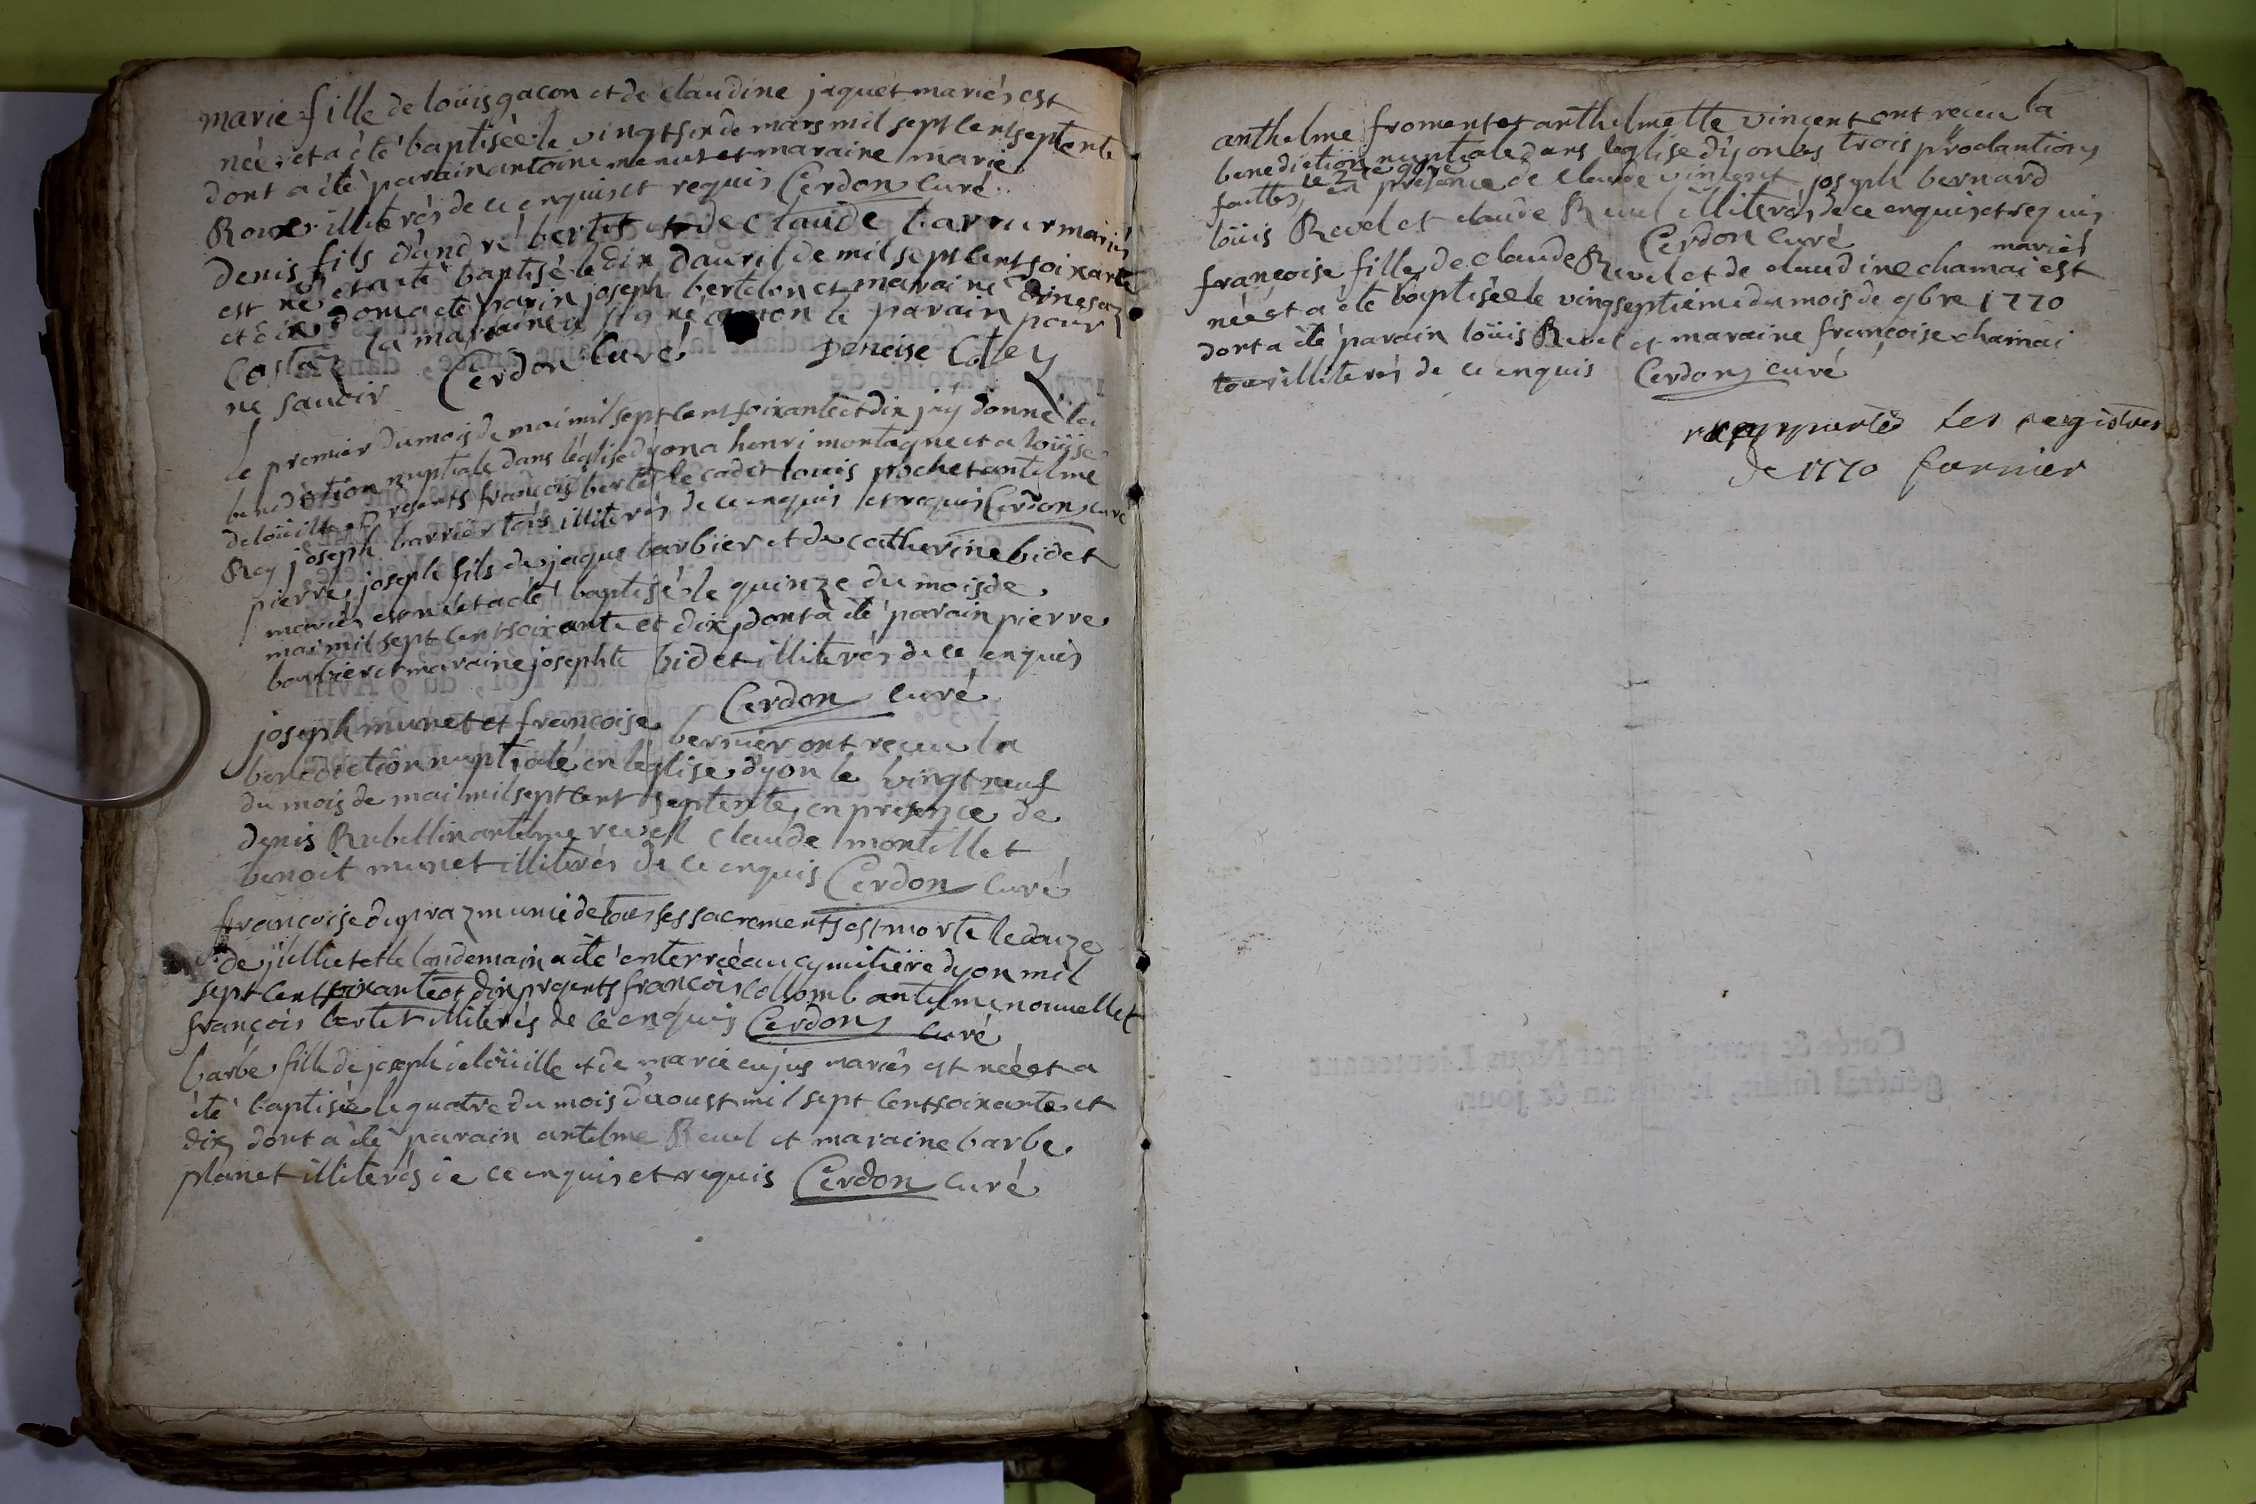 marie fille de loüis gacon et de claudine jaquet mariés est
née et a été baptisée le vingt six de mars mil sept cent septente
dont a été parain antoine menut et maraine marie
Roux illiterés de ce enquis et requis Cerdon curé
denis fils d'andré bertet et de claude barrier mariés
est né et a été baptisé le dix d'avril de mil sept cent soixante
et dix dont a été parin joseph bertelon et maraine
Costaz la maraine a signé non le parain pour
ne savoir Cerdon Curé denoise Coley
le premier du mois de mai mil sept cent soixante et dix j'ay donné la
benediction nuptiale dans l'église dyon a henri montagne et a loüise
deloüille presents francois bertet le cadet louis pochet antelme
Rey joseph barrier tous illiterés de ce enquis et requis Cerdon curé
pierre joseph fils de jaque barbier et de catherine bidet
mariés est né et a été baptisé le quinze du mois de
mai mil sept cent soixante et dix, dont a été parain pierre
barbier et maraine josephte bidet illiterés de ce enquis
Cerdon Curé
joseph munet et francoise bernier ont receu la
benediction nuptiale en l'église dyon le vingt neuf
du mois de mai mil sept cent septente, en presence de
denis Rubellin antelme revel claude montillet
benoit munet illiterés de ce enquis Cerdon Curé
francoise dupraz munie de tous ses sacrements est morte le douze
de jüillet et le landemain a été enterréé au cymitiere dyon mil
sept cent soixante et dix presents francois collomb antelme nouvellet
francois bertet illiterés de ce enquis Cerdon curé
barbe fille de joseph deloüille et de marie cujus mariés est néé et a
été baptisée le quatre du mois d'aoust mil sept cent soixante et
dix dont a été parain antelme Revel et maraine barbe
planet illiterés de ce enquis et requis Cerdon Curé
anthelme froment et anthelmette vincent ont receu la
benediction nuptiale dans leglise dyon les trois proclamtions
faittes, le en presence de claude vincent joseph bernard
loüis Revel et claude Revel illiterés de ce enquis et requis
Cerdon Curé
francoise fille de claude Revel et de claudine chamai mariés est
néé et a été baptisée le vingseptiéme du mois de 9bre 1770
dont a été parain loüis Revel et maraine francoise chamai
tous illiterés de ce enquis Cerdon curé
rapporté les registres
de 1770